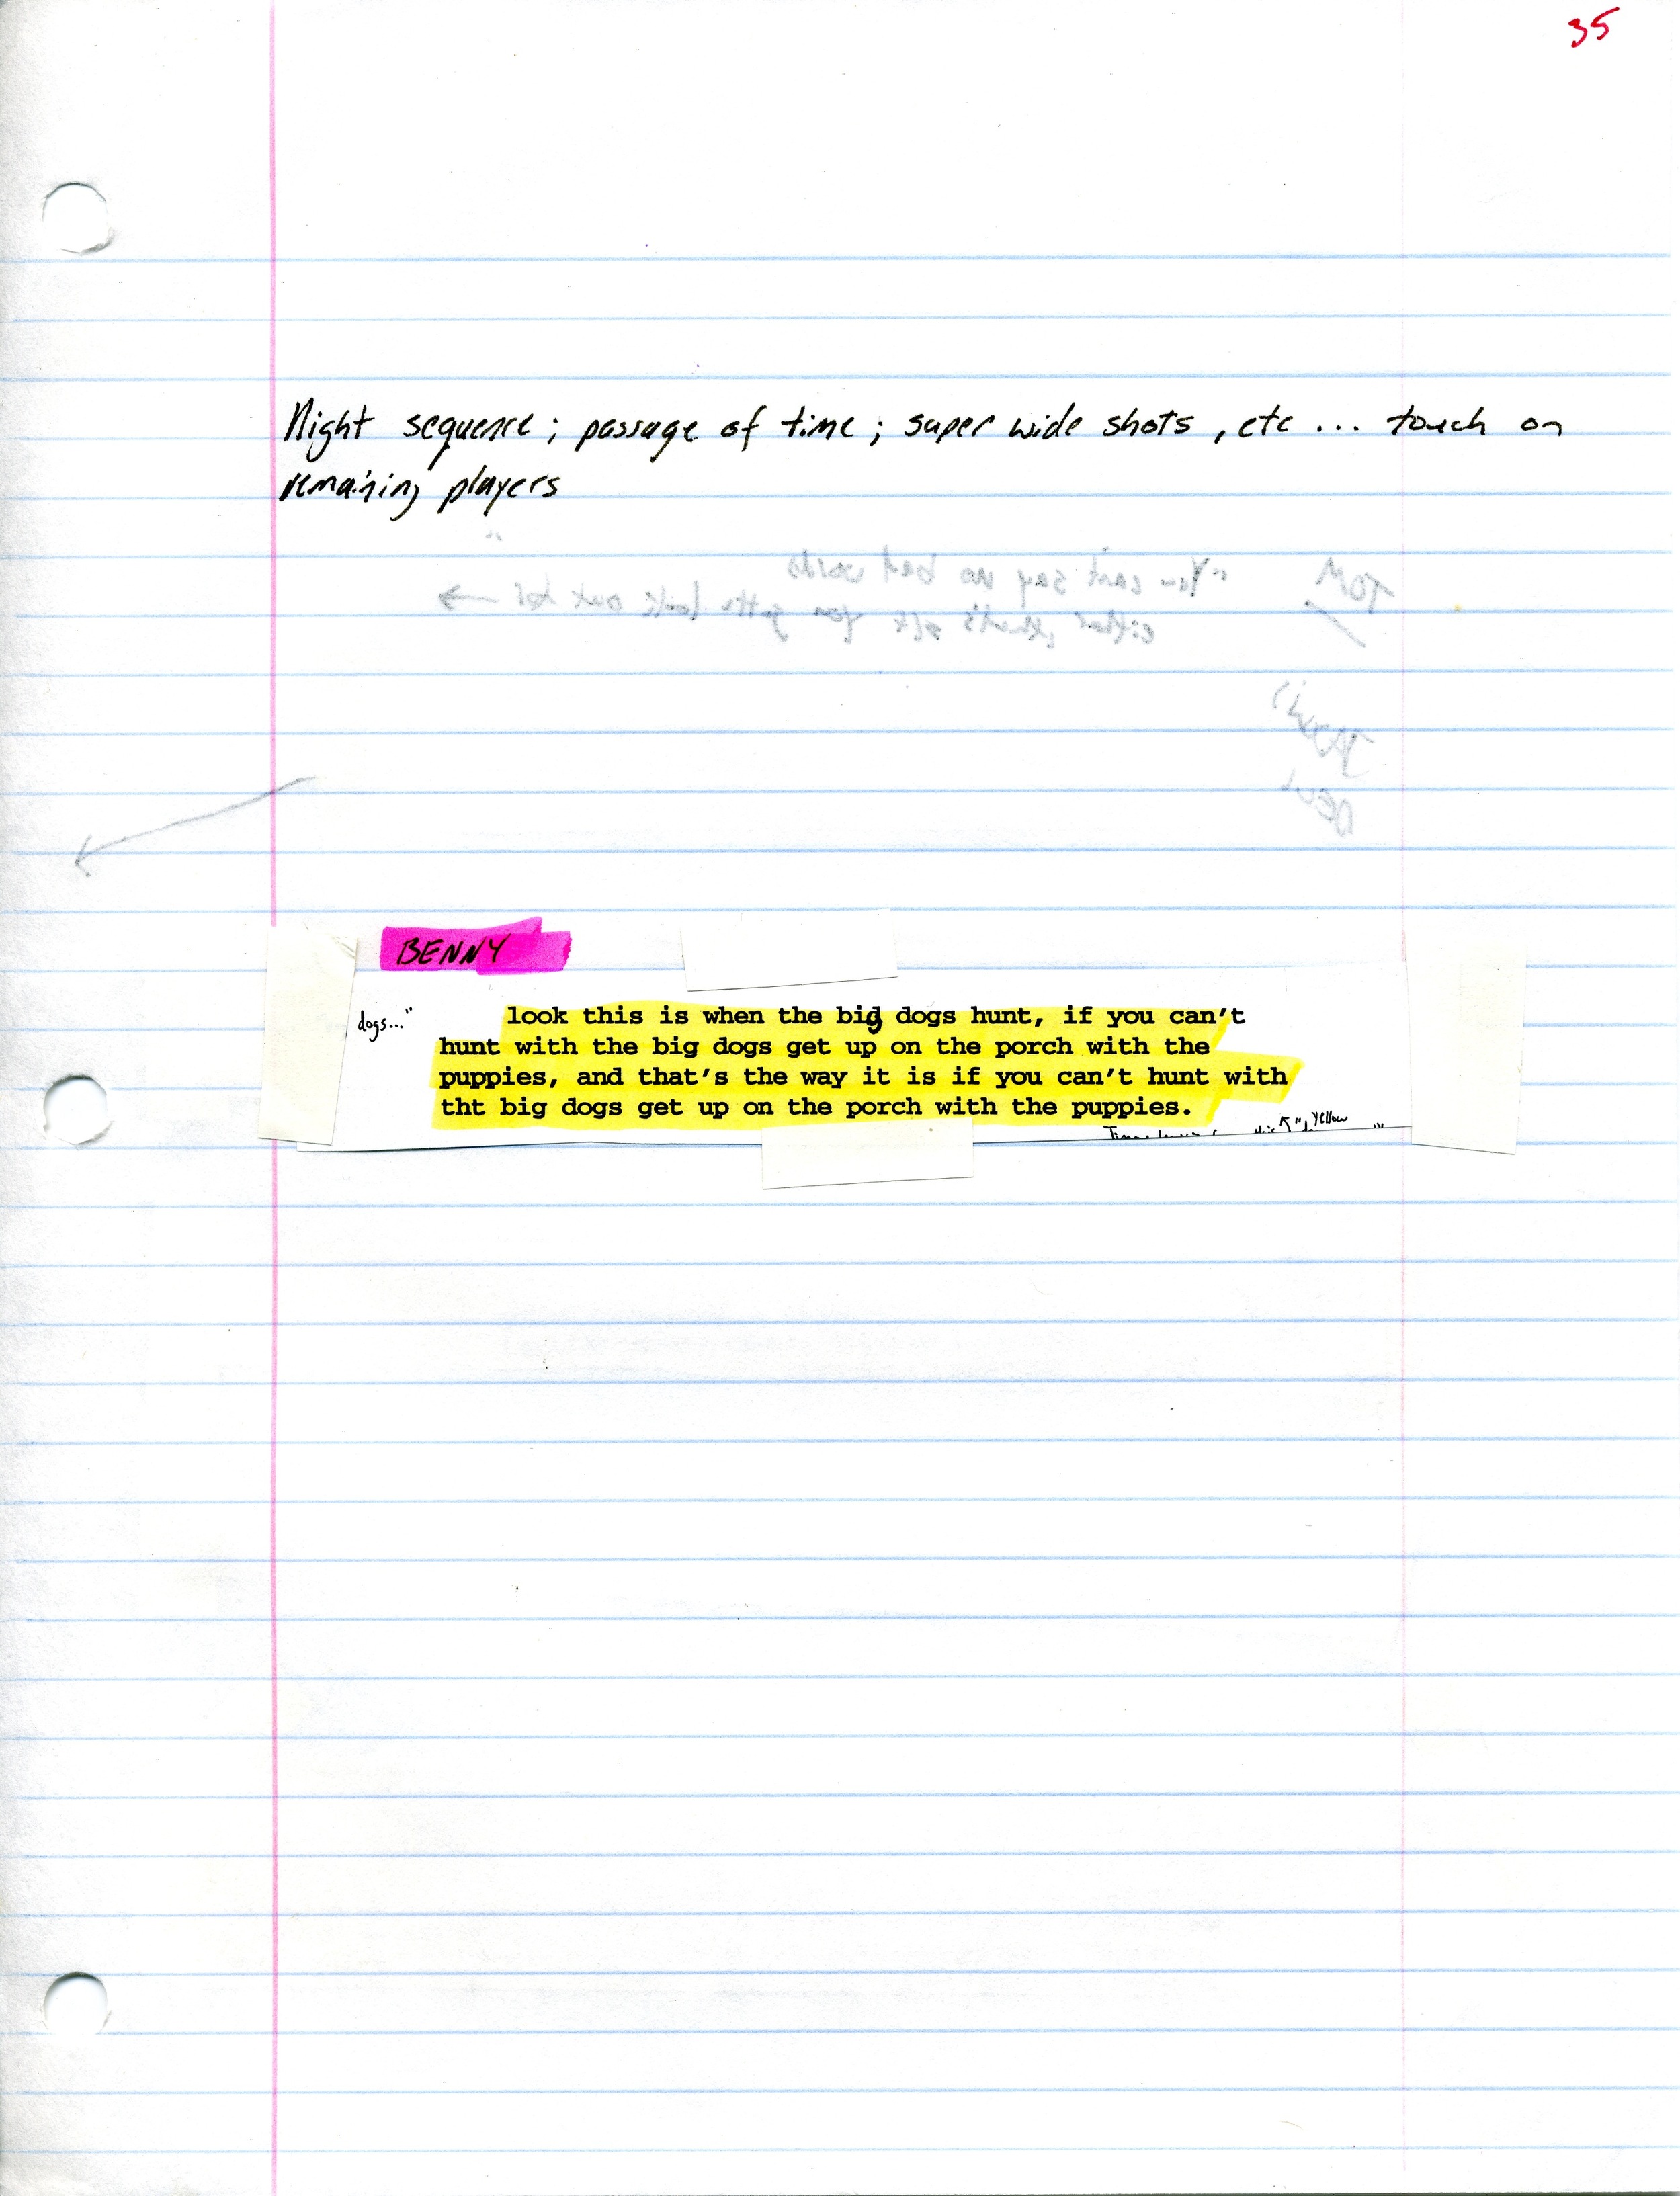 35
Night sequence; passage of time; super wide shots, etc ... touch on
remaining players
"You can't say no bad words
either, that's
TOM
BENNY
dogs..."
look this is when the big dogs hunt, if you can't
hunt with the big dogs get up on the porch with the
puppies, and that's the way it is if you can't hunt with
tht big dogs get up on the porch with the puppies.
Yellow